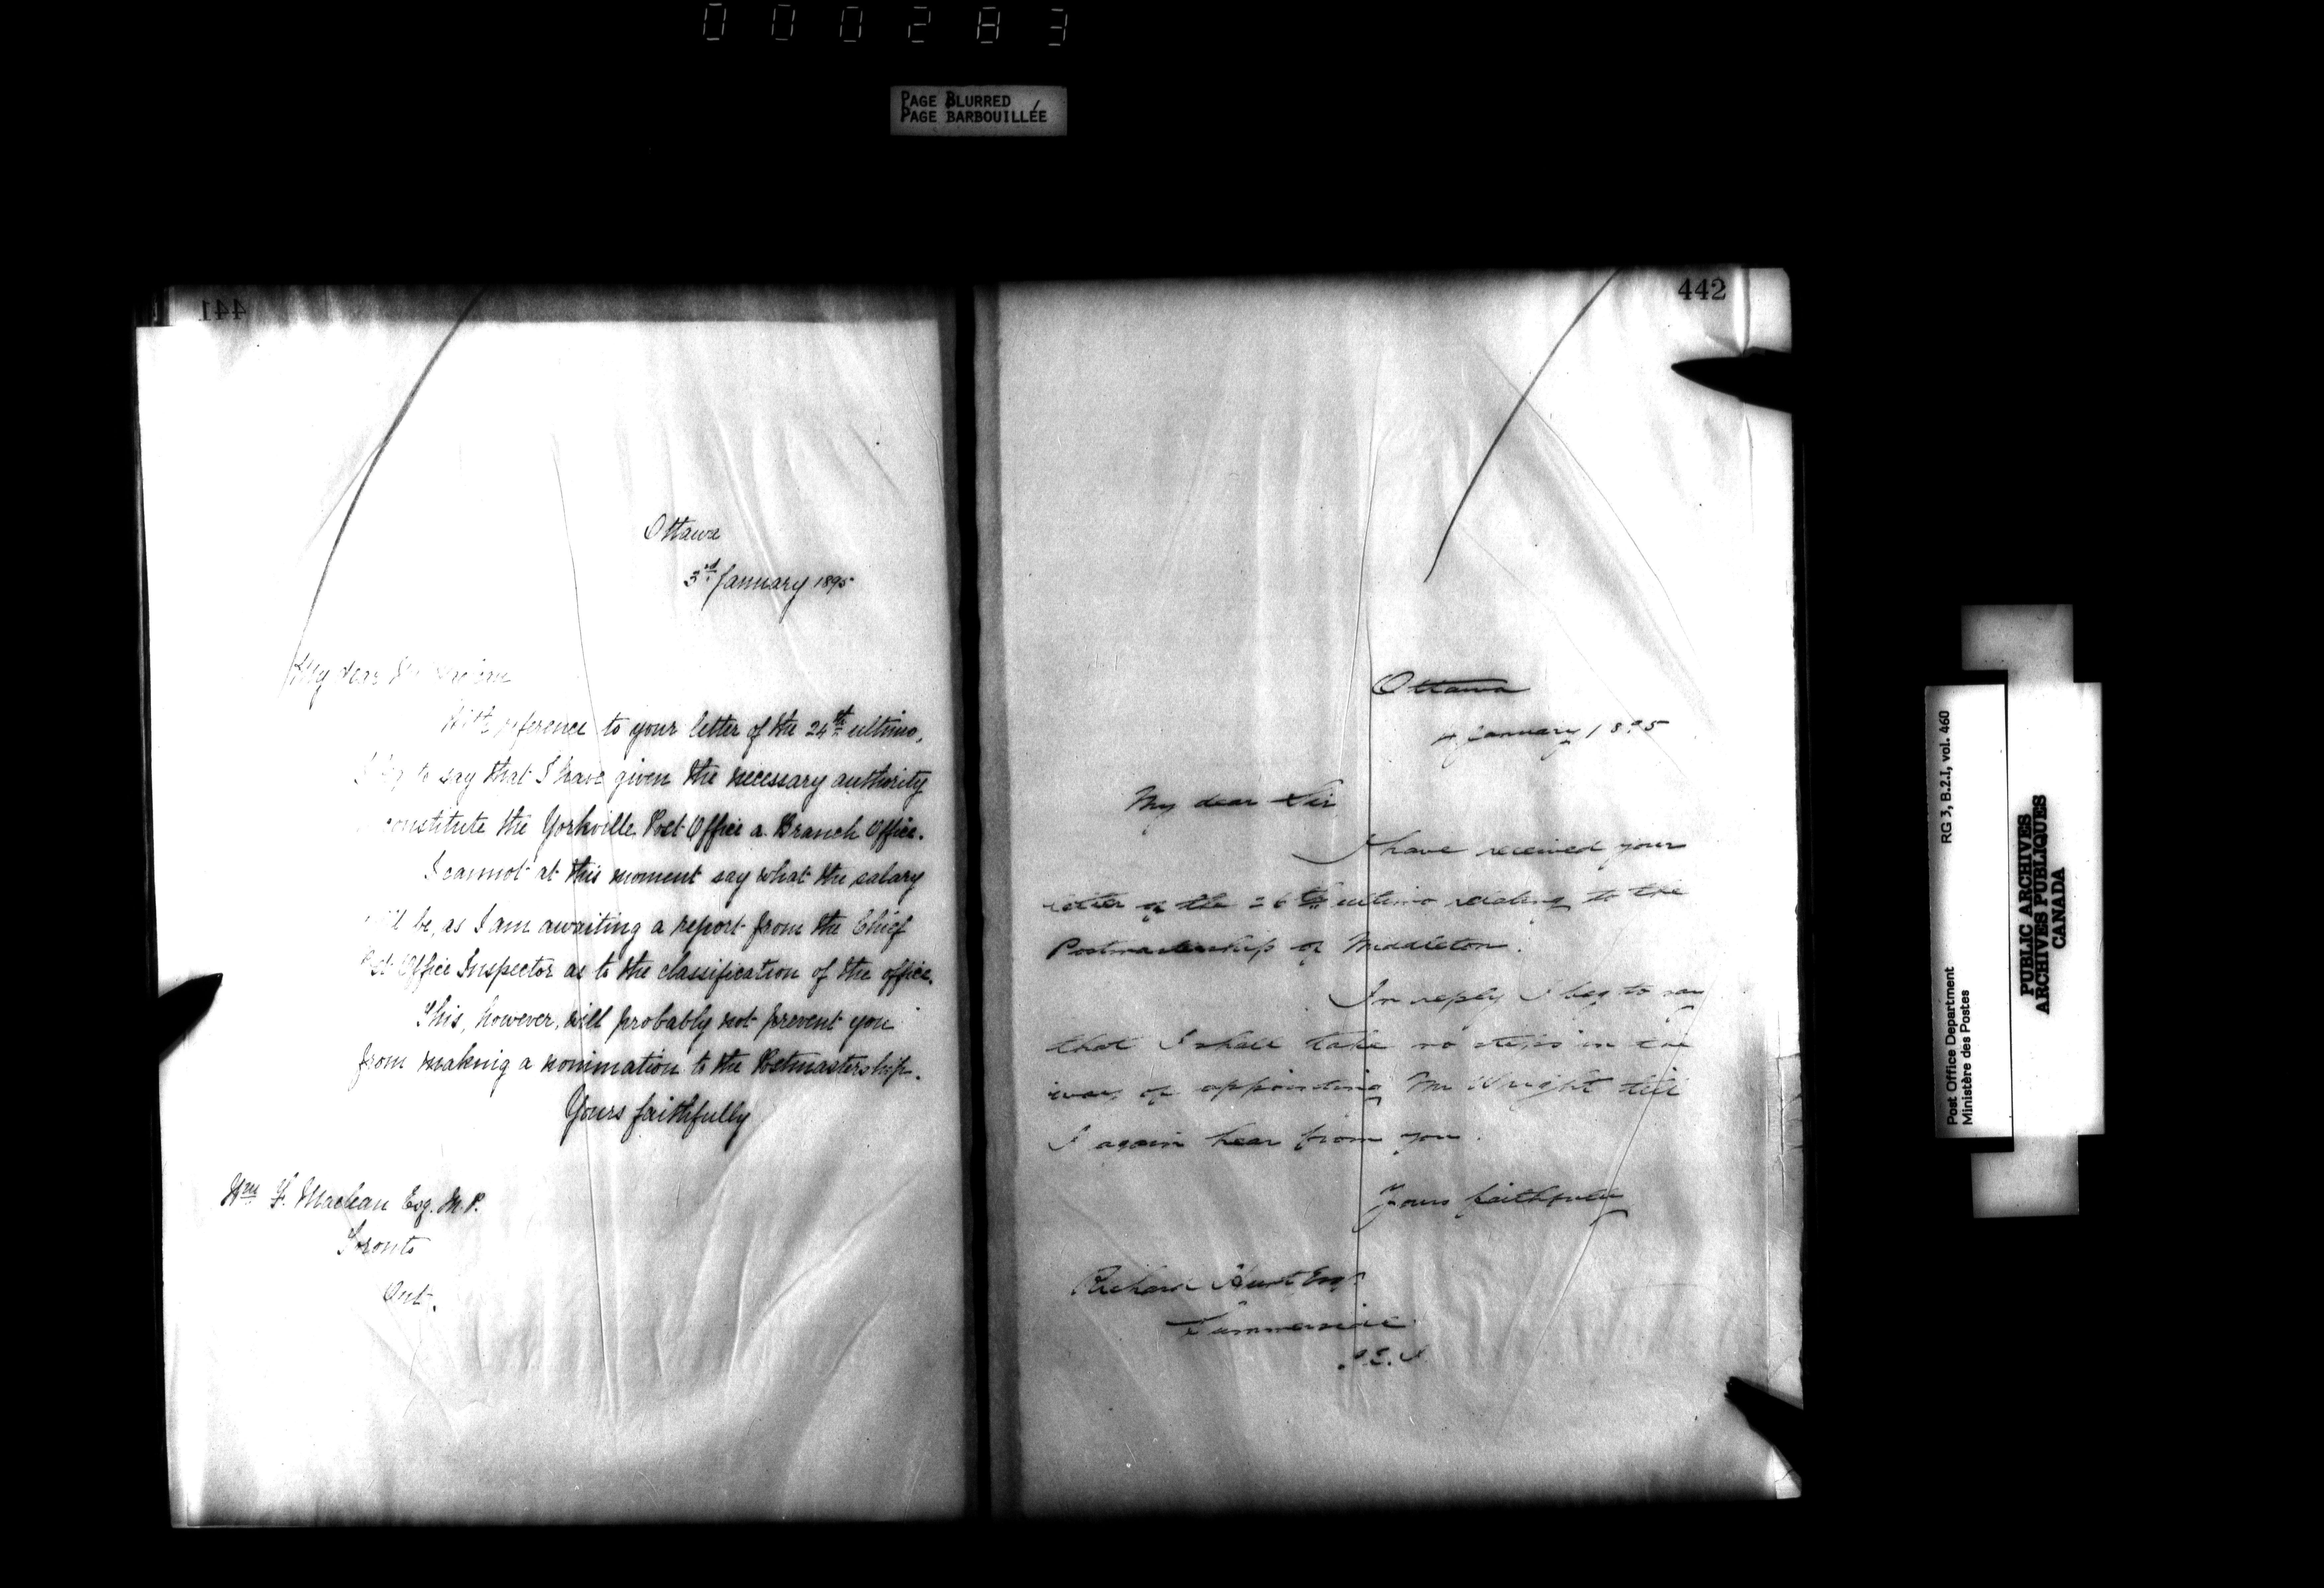 000283
PAGE BLURRED
PAGE BARBOUILLÉE
441
Ottawa
3rd January 1895
My dear Mr Maclean
With reference to your letter of the 24th ultimo,
I beg to say that I have given the necessary authority
constitute the Yorkville Post Office a Branch Office.
I cannot at this moment say what the salary
will be, as I am awaiting a report from the Chief
Post Office Inspector as to the classification of the office.
This, however, will probably not prevent you
from making a nomination to the Postmastership.
Yours faithfully
Wm F. Maclean Esq. M.P.
Toronto
Ont.
442
Ottawa
4 January 1895
My dear Sir
I have received your
letter of the 26th ultimo relating to the
Postmastership of Middleton.
In reply I beg to say
that I shall take no steps in the
way of appointing Mr Wright till
I again hear from you.
Yours faithfully
Richard Hunt Esq.
Summerside
P.E.I
Post Office Department
Ministère des Postes
RG 3, B.2.I, vol. 460
PUBLIC ARCHIVES
ARCHIVES PUBLIQUES
CANADA